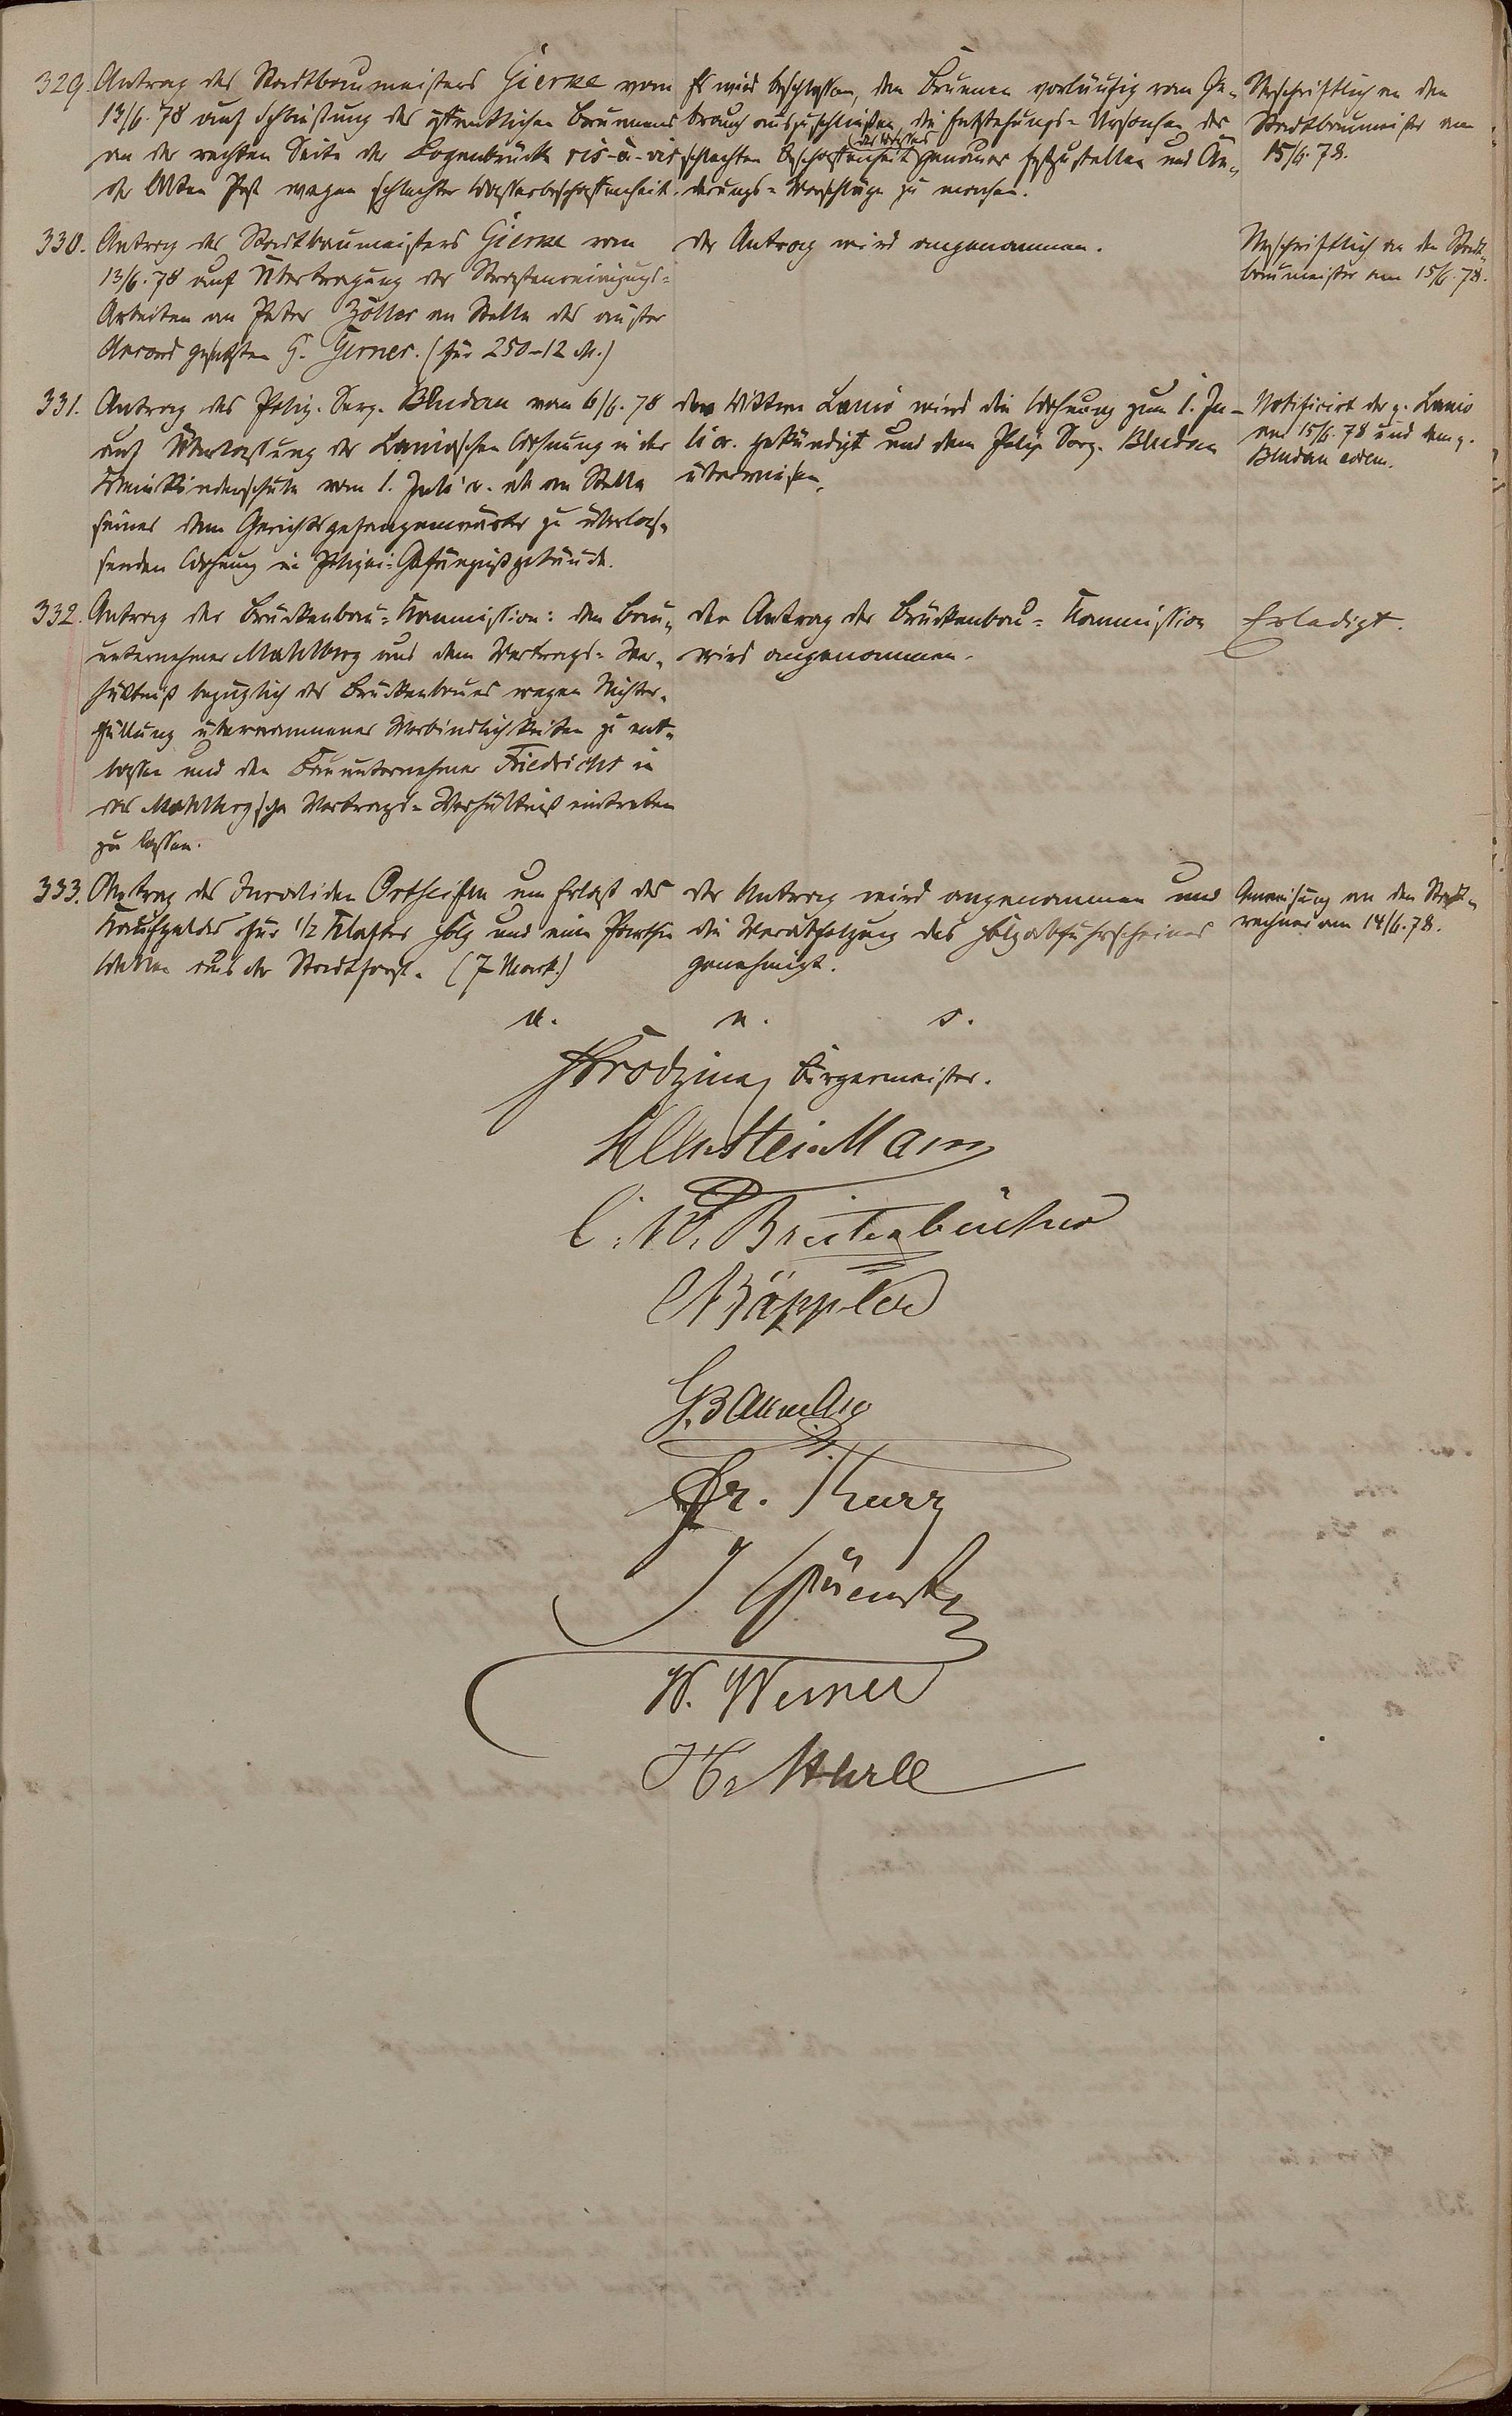 329. Antrag des Stadtbaumeisters Gierke vom
13/6. 78 auf Schließung des öffentlichen Brunnens
an der rechten Seite der Bogenbrücke vis-à-vis
der Alten Post wegen schlechter Wasserbeschaffenheit.
Es wird beschlossen, den Brunnen vorläufig vom Ge-
brauch auszuschließen, die Entstehungs-Ursachen der
des Wassers
schlechten Beschaffenheit genauer festzustellen und Än-
derungs-Vorschläge zu machen.
Abschriftlich an den
Stadtbaumeister am
15/6. 78.
330. Antrag des Stadtbaumeisters Gierke vom
13/6. 78 auf Übertragung der Straßenreinigungs-
Arbeiten an Peter Zöller an Stelle des außer
Accord gesetzten G. Gerner. (für 250-12 M.)
Der Antrag wird angenommen.
Abschriftlich an den Stadt-
baumeister am 15/6. 78.
331. Antrag des Poliz. Serg. Bludau vom 6/6. 78
auf Überlassung der Lanio'schen Wohnung in der
Kleinkinderschule vom 1. Juli cr. ab an Stelle
seiner dem Gerichtsgefangenwärter zu überlas-
senden Wohnung im Polizei-Gefängnißgebäude.
Der Wittwe Lanio wird die Wohnung zum 1. Ju-
li cr. gekündigt und dem Poliz. Serg. Bludau
überwiesen.
Notificirt der p. Lanio
am 15/6. 78 und dem p.
Bludau eodem.
332. Antrag der Brückenbau-Kommission: den Bau-
unternehmer Mahlberg aus dem Vertrags-Ver-
hältniß bezüglich des Brückenbaues wegen Nichter-
füllung übernommener Verbindlichkeiten zu ent-
lassen und den Bauunternehmer Friedrichs in
das Mahlberg'sche Vertrags-Verhältniß eintreten
zu lassen.
Der Antrag der Brückenbau-Kommission
wird angenommen.
Erledigt.
333. Antrag des Invaliden Ortheisen um Erlaß des
Kaufgeldes für 1/2 Klafter Holz und eine Parthie
Wellen aus der Stadtforst. (7 Mark.)
Der Antrag wird angenommen und
die Verabfolgung des Holzabfuhrscheines
genehmigt.
Anweisung an den Stadt-
rechner am 14/6. 78.
u. n. s.
Bürgermeister.
C. W. Breitenbücher
G. Bäumler
Dr. Kurz
W. Werner